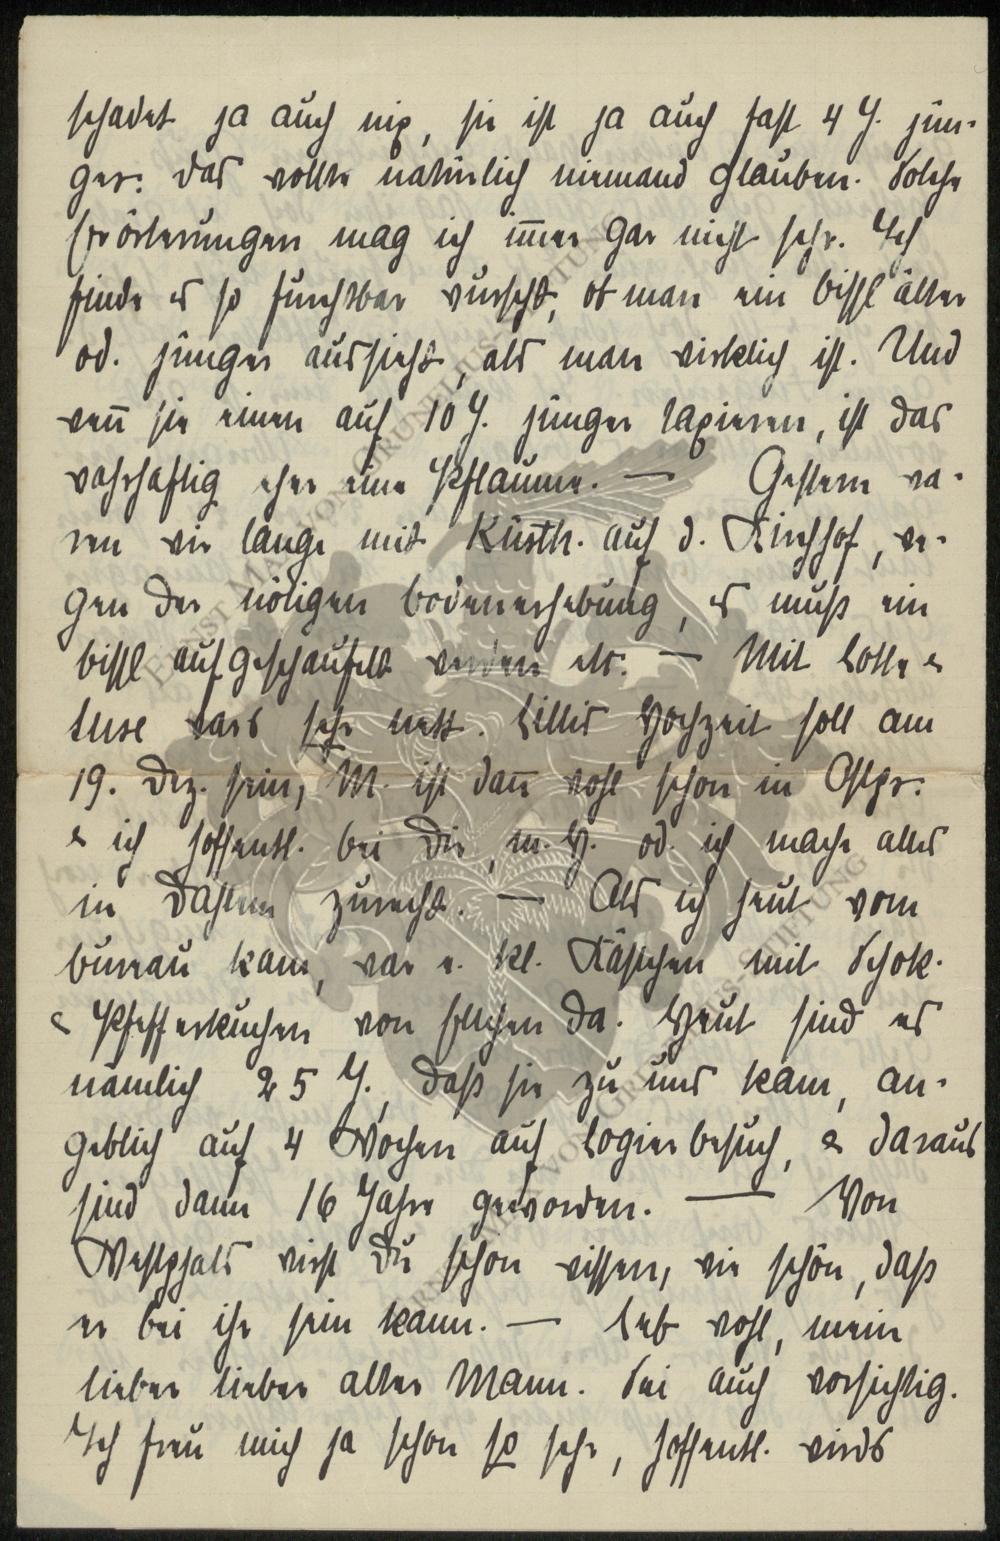 schadet ja auch nix, sie ist ja auch fast 4 J. jün-
ger. Das wollte natürlich niemand glauben. Solche
Erörterungen mag ich im̅er gar nicht sehr. Ich
finde es so furchtbar wurscht, ob man ein bissl älter
od. jünger aussieht, als man wirklich ist. Und
wen̅ sie einen auf 10 J. jünger taxieren, ist das
wahrhaftig eher eine Pflaume. — Gestern wa-
ren wir lange mit Küsth. auf d. Kirchhof, we-
gen der nötigen Bodenerhebung, es muß ein
bissl aufgeschaufelt werden etc. — Mit Lotte &
Suse wars sehr nett. Lillis Hochzeit soll am
19. Dez. sein, M. ist dan̅ wohl schon in Ostpr.
& ich hoffentl. bei Dir, m. H. od. ich mache alles
in Dahlem zurecht. — Als ich heut vom
Bureau kam, war e. kl. Kästchen mit Schok.
& Pfefferkuchen von da. Heut sind es
nämlich 25 J., daß sie zu uns kam, an-
geblich auf 4 Wochen auf Logierbesuch, & daraus
sind dann 16 Jahre geworden. — Von
Westphals wirst Du schon wissen, wie schön, daß
er bei ihr sein kann. — Leb wohl, mein
lieber lieber alter Mann. Sei auch vorsichtig.
Ich freu mich ja schon so sehr, hoffentl. wirds
ERNST MAX VON GRUNELIUS-STIFTUNG
ERNST MAX VON GRUNELIUS-STIFTUNG